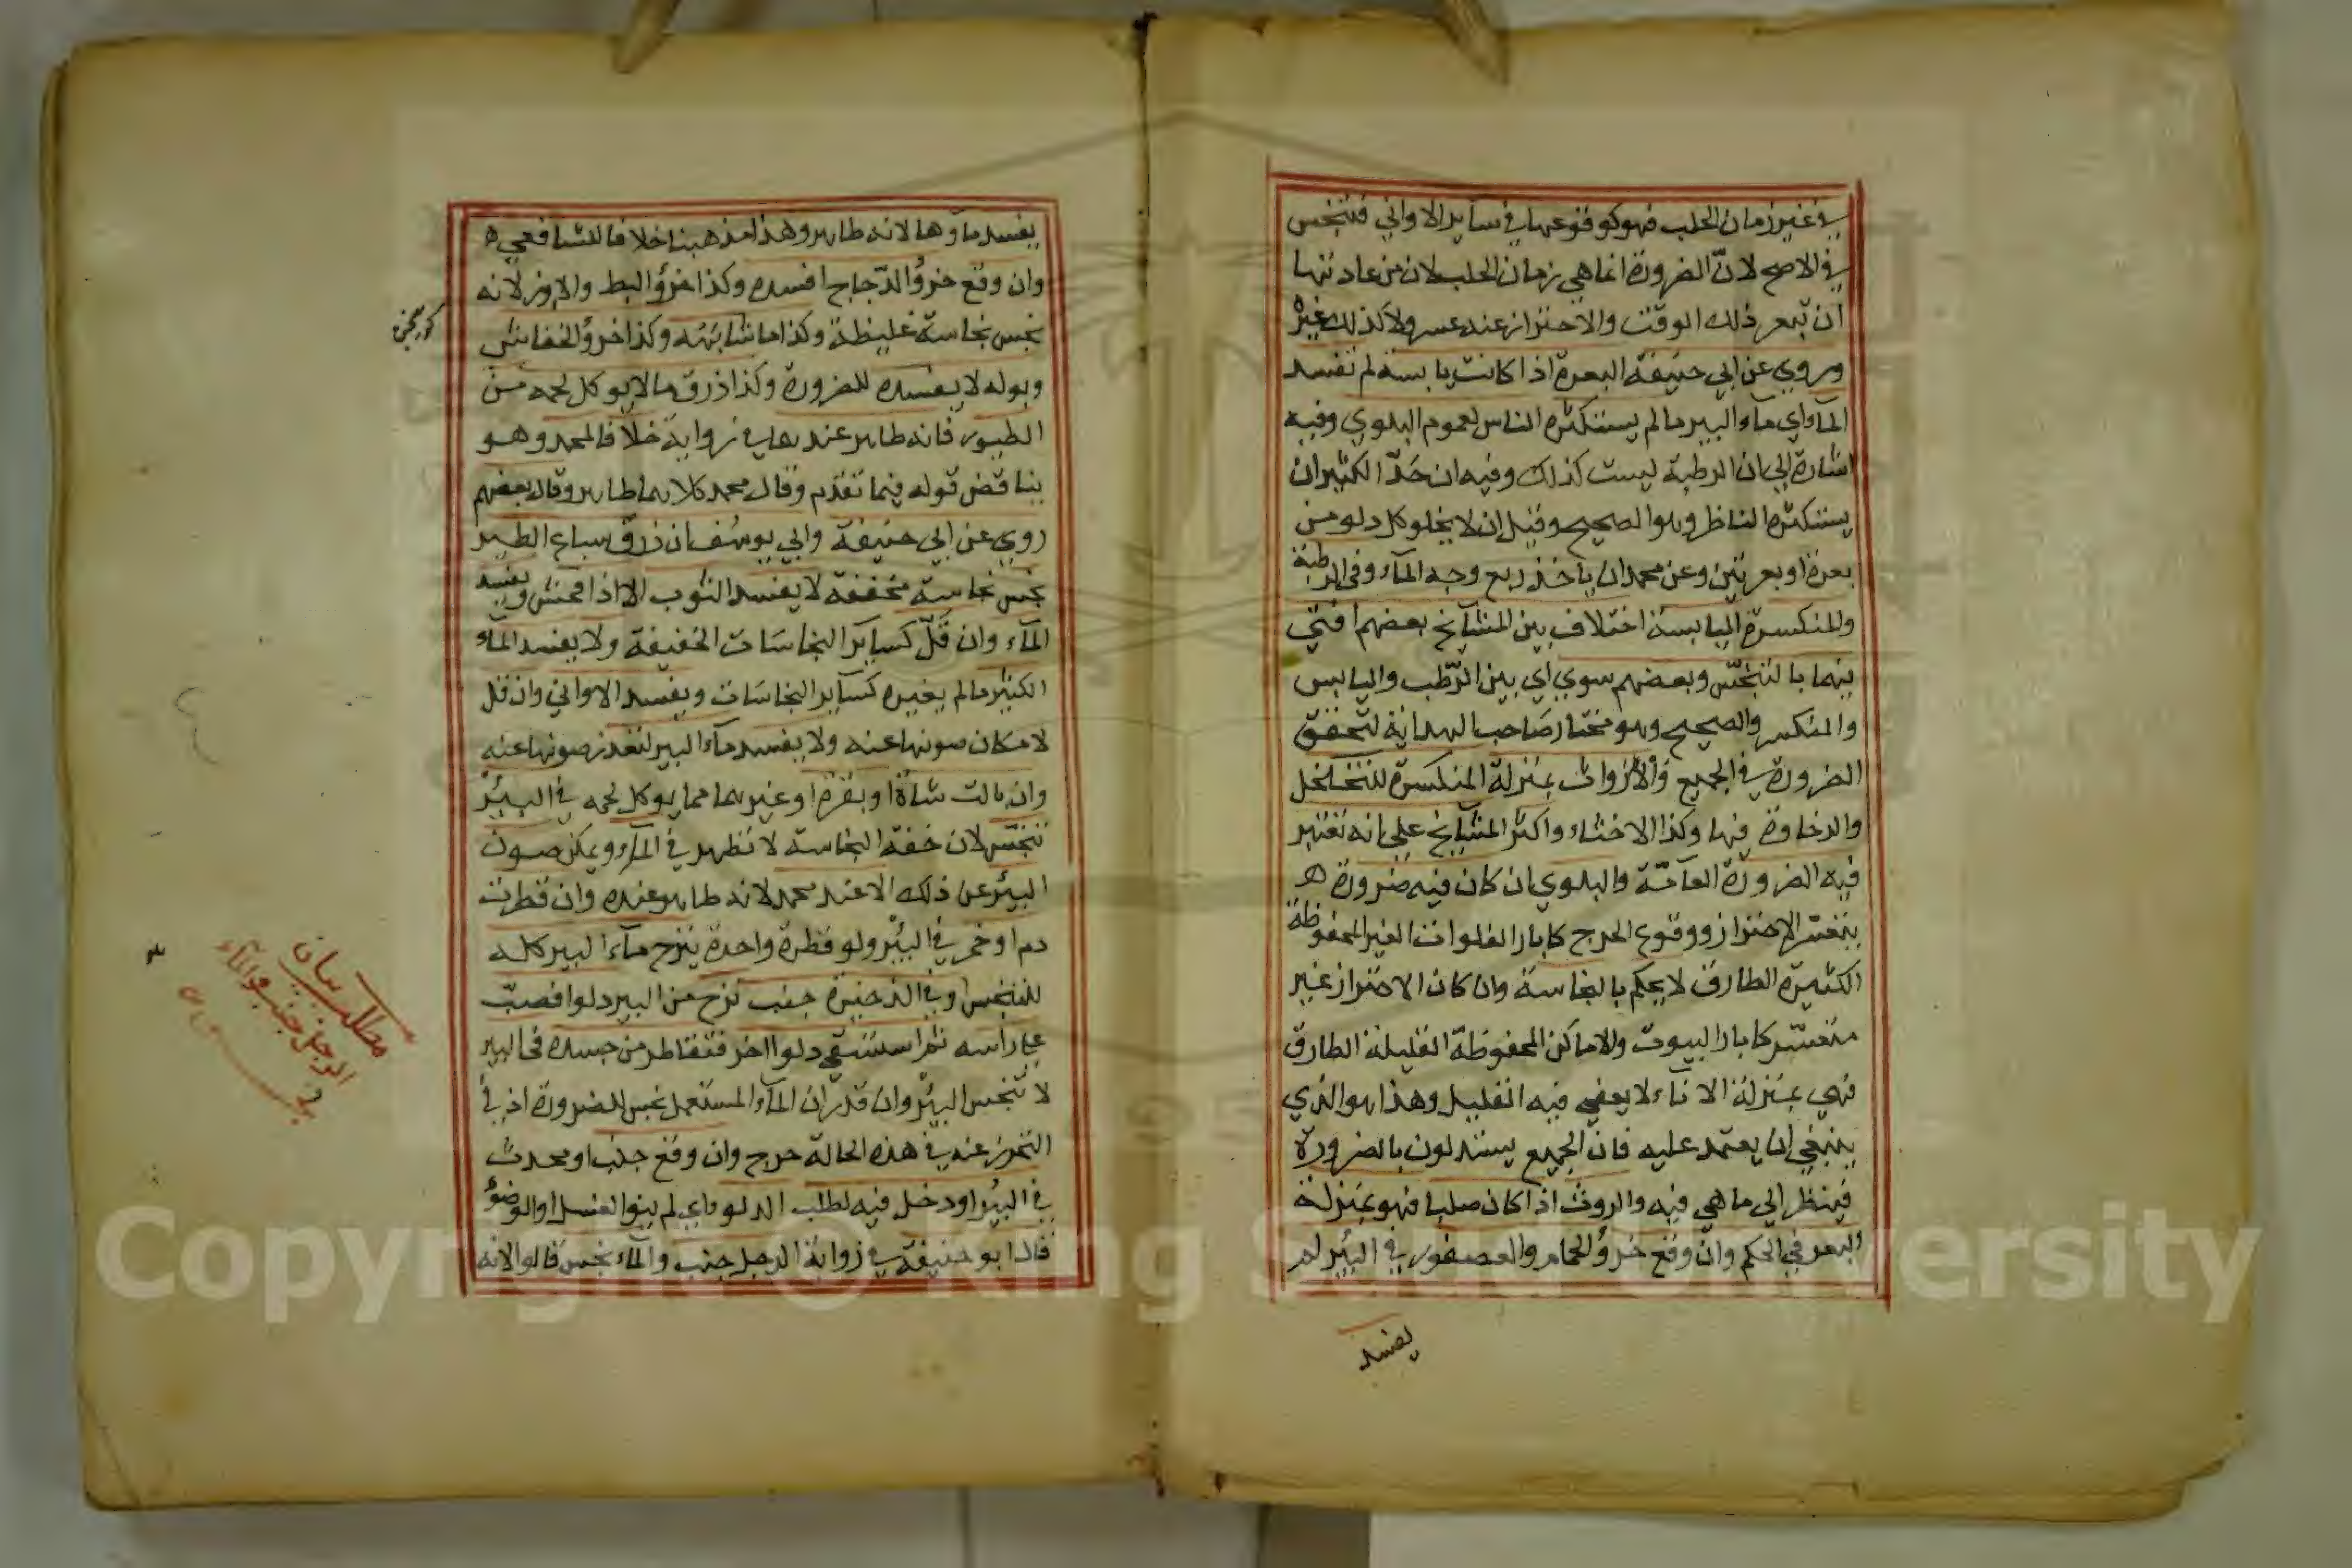 في غير زمان الحلب فهو كوقوعها في سآير الاواني فتنجس
في الاصح لانّ الضرورة انما هي زمان الحلب لان من عادتها
ان تبعر ذلك الوقت والاحتراز عنه عسر ولا كذلك غيره
وروي عن ابي حنيفة البعرة اذا كانت يابسة لم تفسد
المآء اي مآء البير ما لم يستكثره الناس لعموم البلوي وفيه
اشارة الي ان الرطبة ليست كذلك وفيه ان حَدّ الكثير ان
يستكثره الناظر وهو الصحيح وقيل ان لا يخلو كل دلو من
بعرة او بعرتين وعن محمد ان ياخذ ربع وجه المآء وفي الرطبة
والمنكسرة اليابسة اختلاف بين المشآيخ بعضهم افتي
فيهما بالتنجّس وبعضهم سوي اي بين الرّطب واليابس
والمنكسر والصحيح وهو مختار صَاحب الهداية لتحقق
الضرورة في الجميع والأرواث بمنزلة المنكسرة للتخلخل
والرخاوة فيها وكذا الاخثاء واكثر المشآيخ علي انه تعتبر
فيه الضرورة العآمّة والبلوي ان كان فيه ضرورة ه
بتعسّر الاحتراز ووقوع الحرج كابار الفلوات الغير المحفوظة
الكثيرة الطارق لا يحكم بالنجاسة وان كان الاحتراز غير
متعسّر كابار البيوت والاماكن المحفوظة القليلة الطارق
فهي بمنزلة الانآء لا يعفي فيه القليل وهذا هو الذي
ينبغي ان يعتمد عليه فان الجميع يستدلون بالضرورة
فينظر الي ما هي فيه والروث اذا كان صلبا فهو بمنزلة
البعر في الحكم وان وقع خرؤ الحمام والعصفور في البئر لم
يفسد
يفسد مآوها لانه طاهر وهذا مذهبنا خلافا للشافعي ه
وان وقع خرؤ الدّجاج افسده وكذا خرؤ البط والاوز لانه
نجس نجاسة غليظة وكذا ما شابهَهُ وكذا خرؤ الخفاش
وبوله لا يفسده للضرورة وكذا ذرق ما لا يوكل لحمه من
الطيور فانه طاهر عندهما في رواية خلافا لمحمد وهو
يناقض قوله فيما تقدم وقال محمد كلاهما طاهر وقال بعضهم
روي عن ابي حنيفة وابي يوسُف ان ذرق سباع الطير
نجس نجاسة مخففة لا يفسد الثوب الا اذا فحش ويفسد
المآء وان قَلّ كسايَر النجاسَات الخفيفة ولا يفسد المآء
الكثير ما لم يغيره كسآير النجاسَات ويفسد الاواني وان قل
لامكان صونها عنه ولا يفسد مآء البير لتعذر صونها عنه
وان بالت شاة او بقرة او غيرهما مما يوكل لحمه في البئر
تنجّس لان خفة النجاسة لا تظهر في المآء ويمكن صون
البئر عن ذلك الا عند محمد لانه طاهر عنده وان قطرت
دم او خمر في البئر ولو قطرة واحدة ينزح مآء البير كله
للتنجس وفي الذخيرة جنب نزح من البير دلوا فصبّ
علي راسه ثم استسقي دلوا اخر فتقاطر من جسده في البير
لا تنجس البئر وان قدّر ان المآء المستعمل نجس للضرورة اذ في
التحرز عنه في هذه الحالة حرج وان وقع جنب او محدث
في البئر او دخل فيه لطلب الدلو ولم ينو الغسل او الوضوُ
قال ابو حنيفة في رواية الرجل جنب والمآء نجس قالوا لانه
مطلب بيان
الرجل جنب والمآء
نجس
Copyright © King Saud University